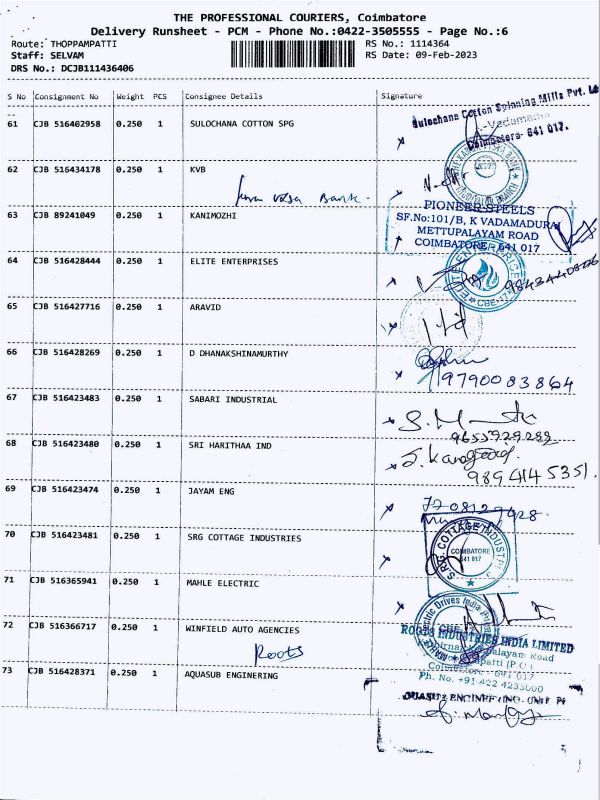 THE PROFESSIONAL COURIERS, Coimbatore
Delivery Runsheet - PCM - Phone No.:0422-3505555 - Page No.:6
Route: THOPPAMPATTI
RS No.: 1114364
Staff: SELVAM
RS Date: 09-Feb-2023
DRS No.: DCJB111436406
S No Consignment No Weight PCS Consignee Details Signature
61 CJB 516402958 0.250 1 SULOCHANA COTTON SPG
Sulochana Cotton Spinning Mills Pvt. Ltd
Vadamadurai
Coimbatore- 641 017.
62 CJB 516434178 0.250 1 KVB
Karur Vysya Bank
63 CJB 89241049 0.250 1 KANIMOZHI
PIONEER STEELS
SF.No:101/B, K VADAMADURAI
METTUPALAYAM ROAD
COIMBATORE - 641 017
64 CJB 516428444 0.250 1 ELITE ENTERPRISES
CBE-17
65 CJB 516427716 0.250 1 ARAVID
66 CJB 516428269 0.250 1 D DHANAKSHINAMURTHY
9790083864
67 CJB 516423483 0.250 1 SABARI INDUSTRIAL
9655929288
68 CJB 516423480 0.250 1 SRI HARITHAA IND
9894145351.
69 CJB 516423474 0.250 1 JAYAM ENG
70 CJB 516423481 0.250 1 SRG COTTAGE INDUSTRIES
S.R.G. COTTAGE INDUSTRIES
COIMBATORE
641 017
71 CJB 516365941 0.250 1 MAHLE ELECTRIC
Electric Drives India
72 CJB 516366717 0.250 1 WINFIELD AUTO AGENCIES
Roots
ROOTS INDUSTRIES INDIA LIMITED
Coimbatore - 641 017
Ph. No. +91 422 4233000
73 CJB 516428371 0.250 1 AQUASUB ENGINERING
AQUASUB ENGINEERING-UNIT